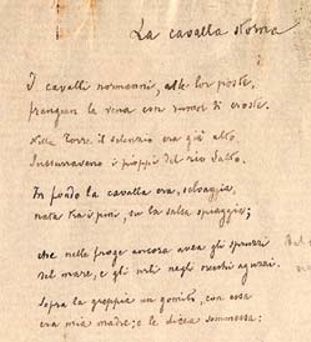 La cavalla storna
I cavalli normanni, alle lor poste,
frangean la vena con rumor di croste.
Nella Torre il silenzio era già alto.
Sussurravano i pioppi del rio Salto.
In fondo la cavalla era, selvaggia,
nata tra i pini, su la salsa spiaggia;
che nelle froge ancora avea gli spruzzi
del mare, e gli urli negli orecchi aguzzi.
Sopra la greppia un gomito, con essa
era mia madre; e le dicea sommessa: